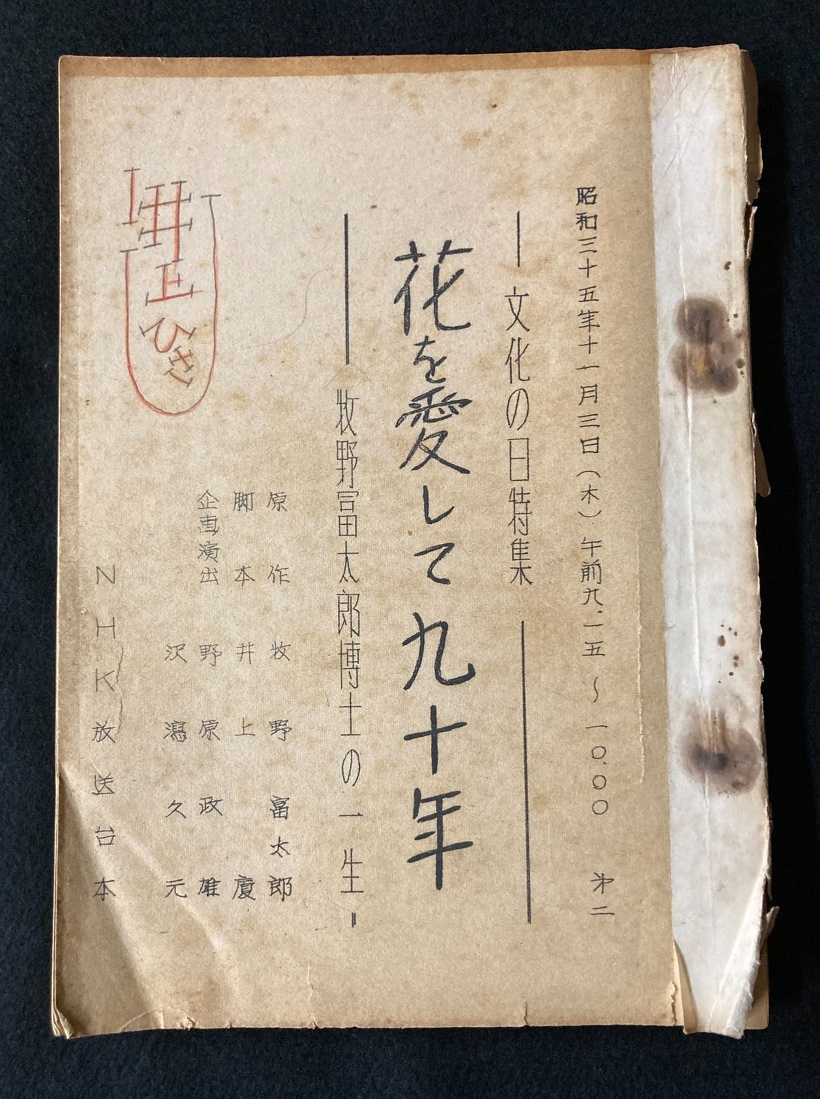 昭和三十五年十一月三日(木) 午前九.一五~一〇.〇〇 第二
文化の日特集
花を愛して九十年
牧野富太郎博士の一生
原作 牧野富太郎
脚本 井上慶
企画演出 野原政雄
沢瀉久元
NHK放送台本
ひさ